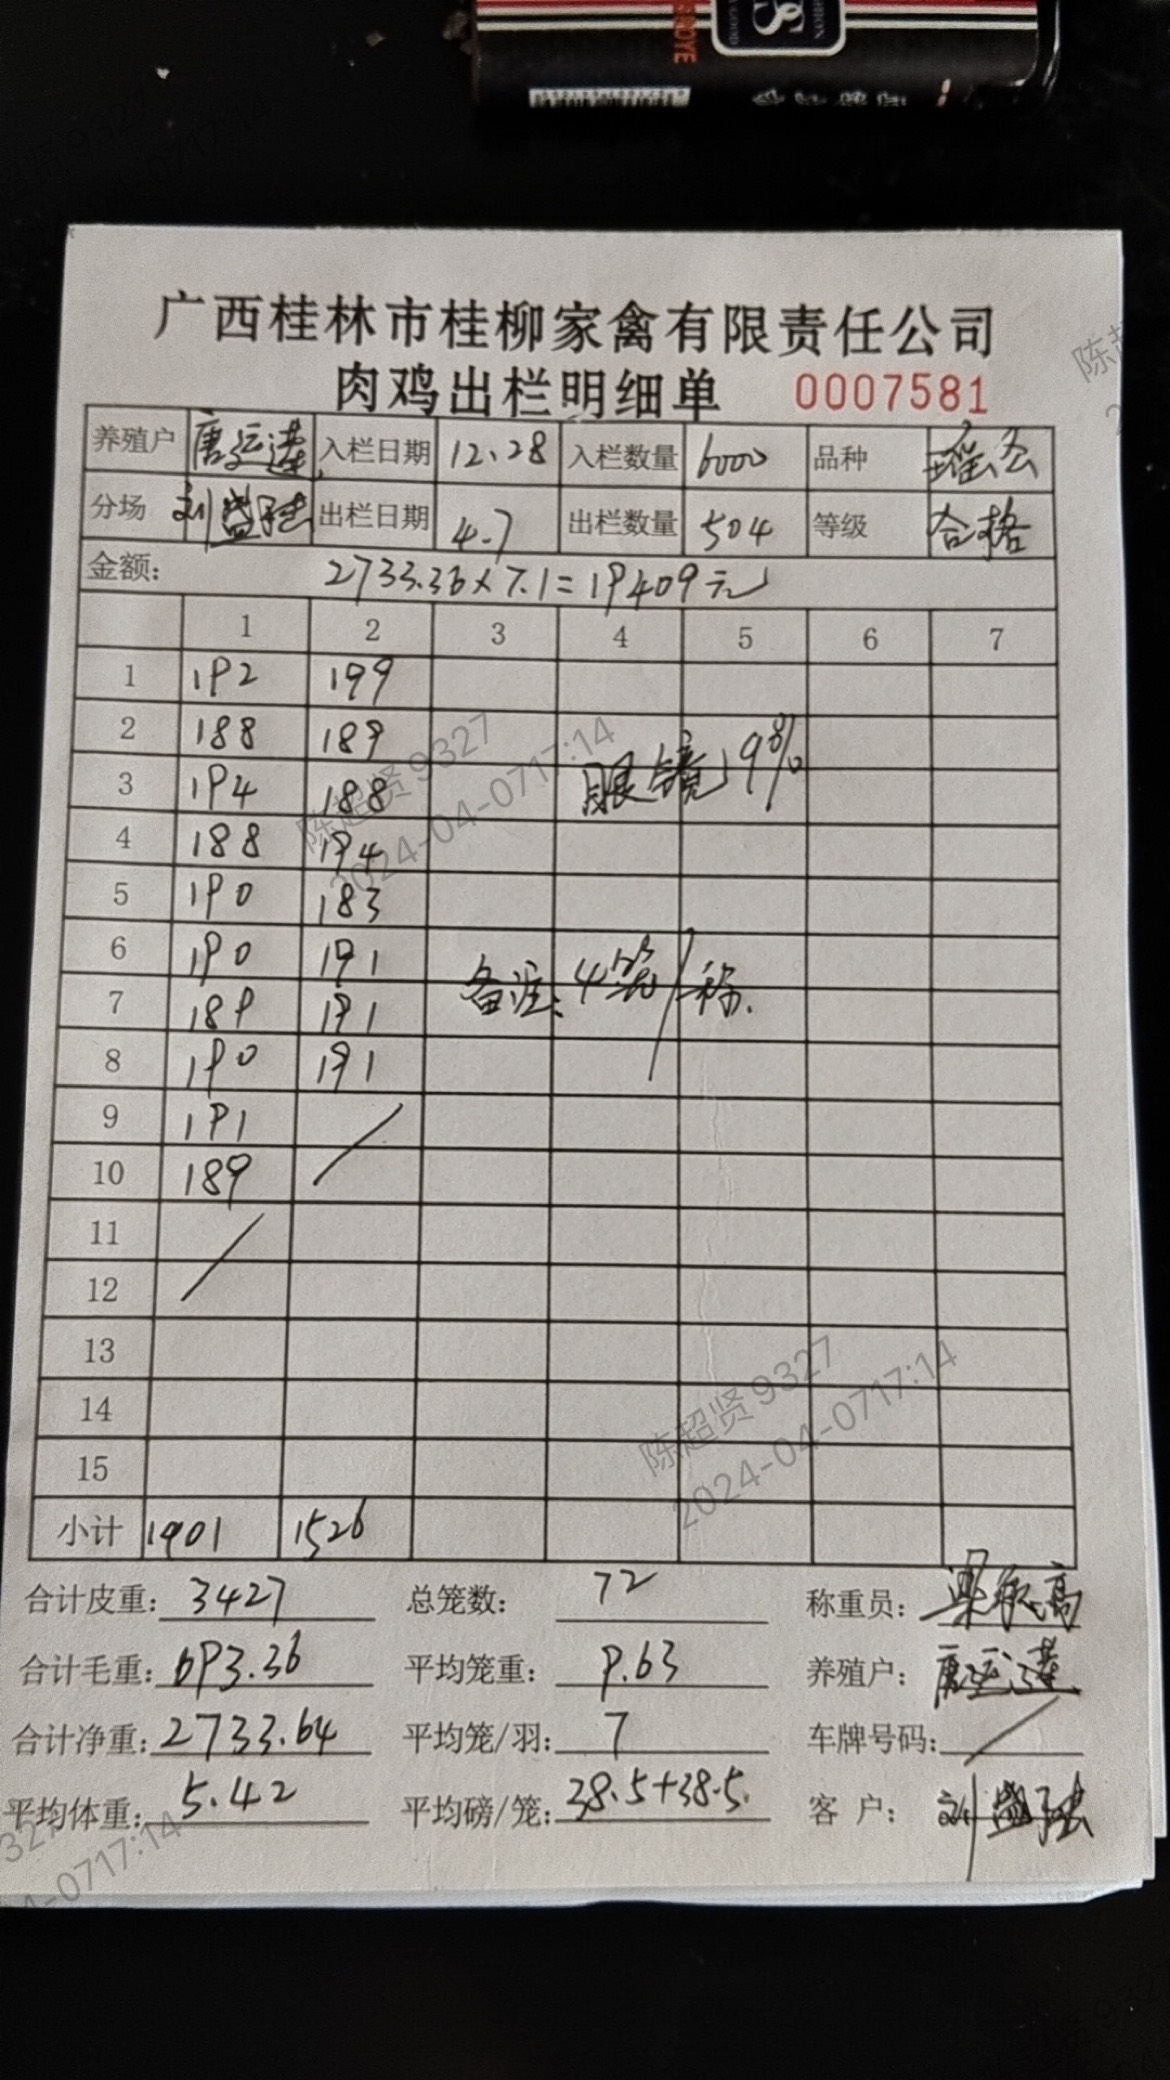 广西桂林市桂柳家禽有限责任公司
肉鸡出栏明细单 0007581
养殖户 唐运莲 入栏日期 12.28 入栏数量 6000 品种 瑶公
分场 出栏日期 4.7 出栏数量 504 等级 合格
金额: 2733.36×7.1=19409元
1 2 3 4 5 6 7
1 192 199
2 188 189
眼镜19%
3 194 188
4 188 194
5 190 183
6 190 191
备注:4笼/称.
7 189 191
8 190 191
9 191
10 189
11
12
13
14
15
小计 1901 1526
合计皮重: 3427 总笼数: 72 称重员:
合计毛重: 693.36 平均笼重: 9.63 养殖户: 唐运莲
合计净重: 2733.64 平均笼/羽: 7 车牌号码:
平均体重: 5.42 平均磅/笼: 38.5+38.5. 客 户:
陈超贤 9327
2024-04-0717:14
陈超贤 9327
2024-04-0717:14